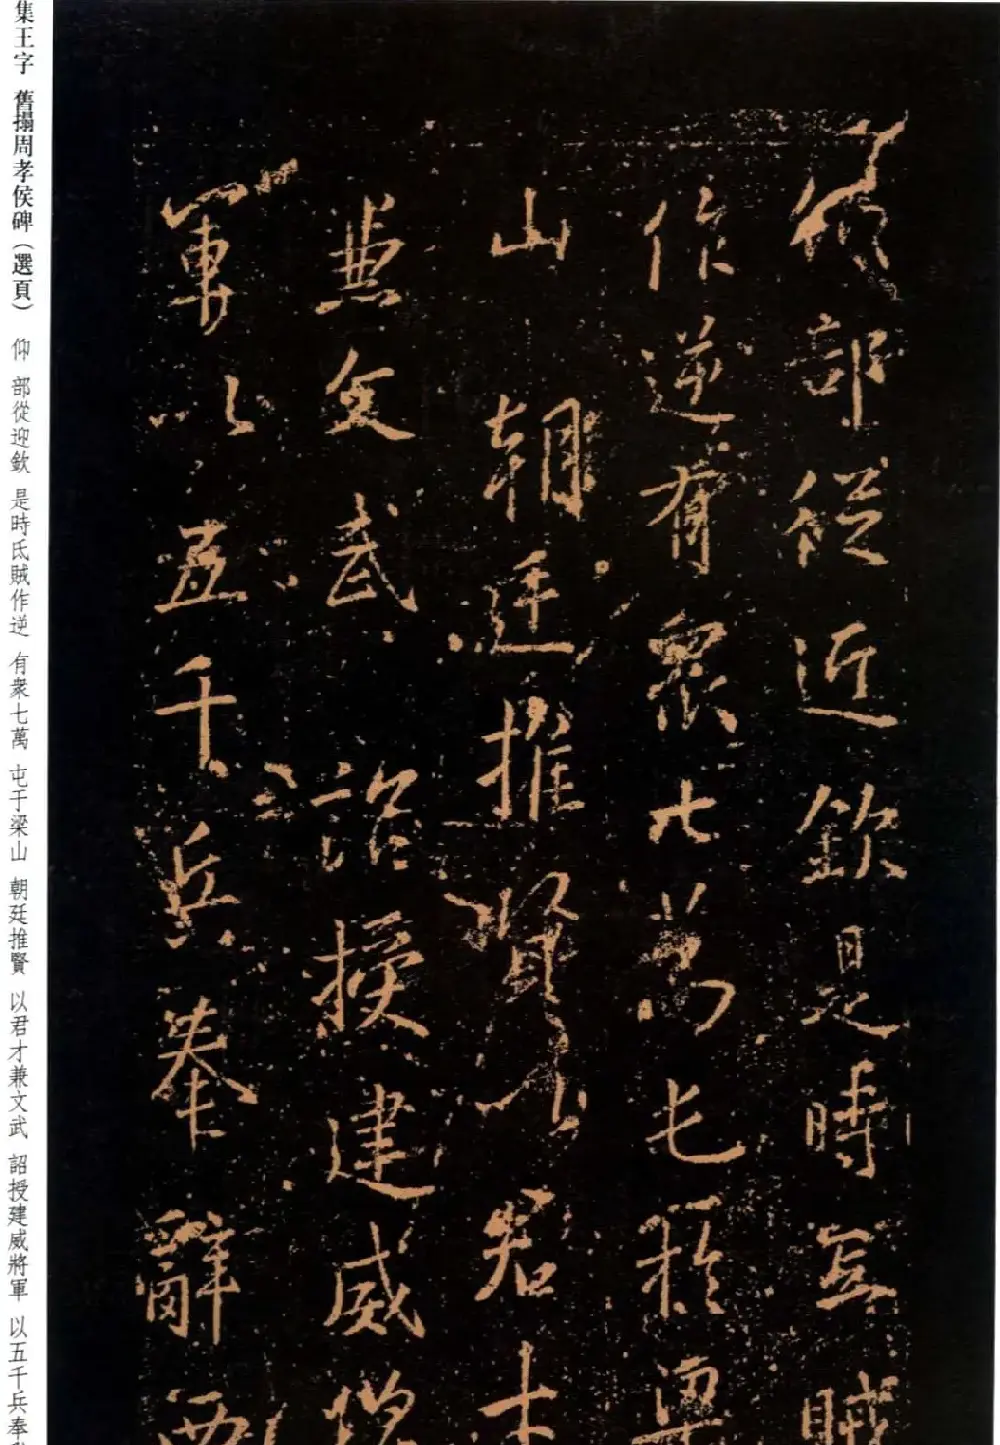 部從迎欽是時氐賊
作逆有衆七萬屯於梁
山朝廷推賢以君才
兼文武詔授建威將
軍以五千兵奉辭西
集王字 舊搨周孝侯碑(選頁) 仰 部從迎欽 是時氐賊作逆 有衆七萬 屯于梁山 朝廷推賢 以君才兼文武 詔授建威將軍 以五千兵奉